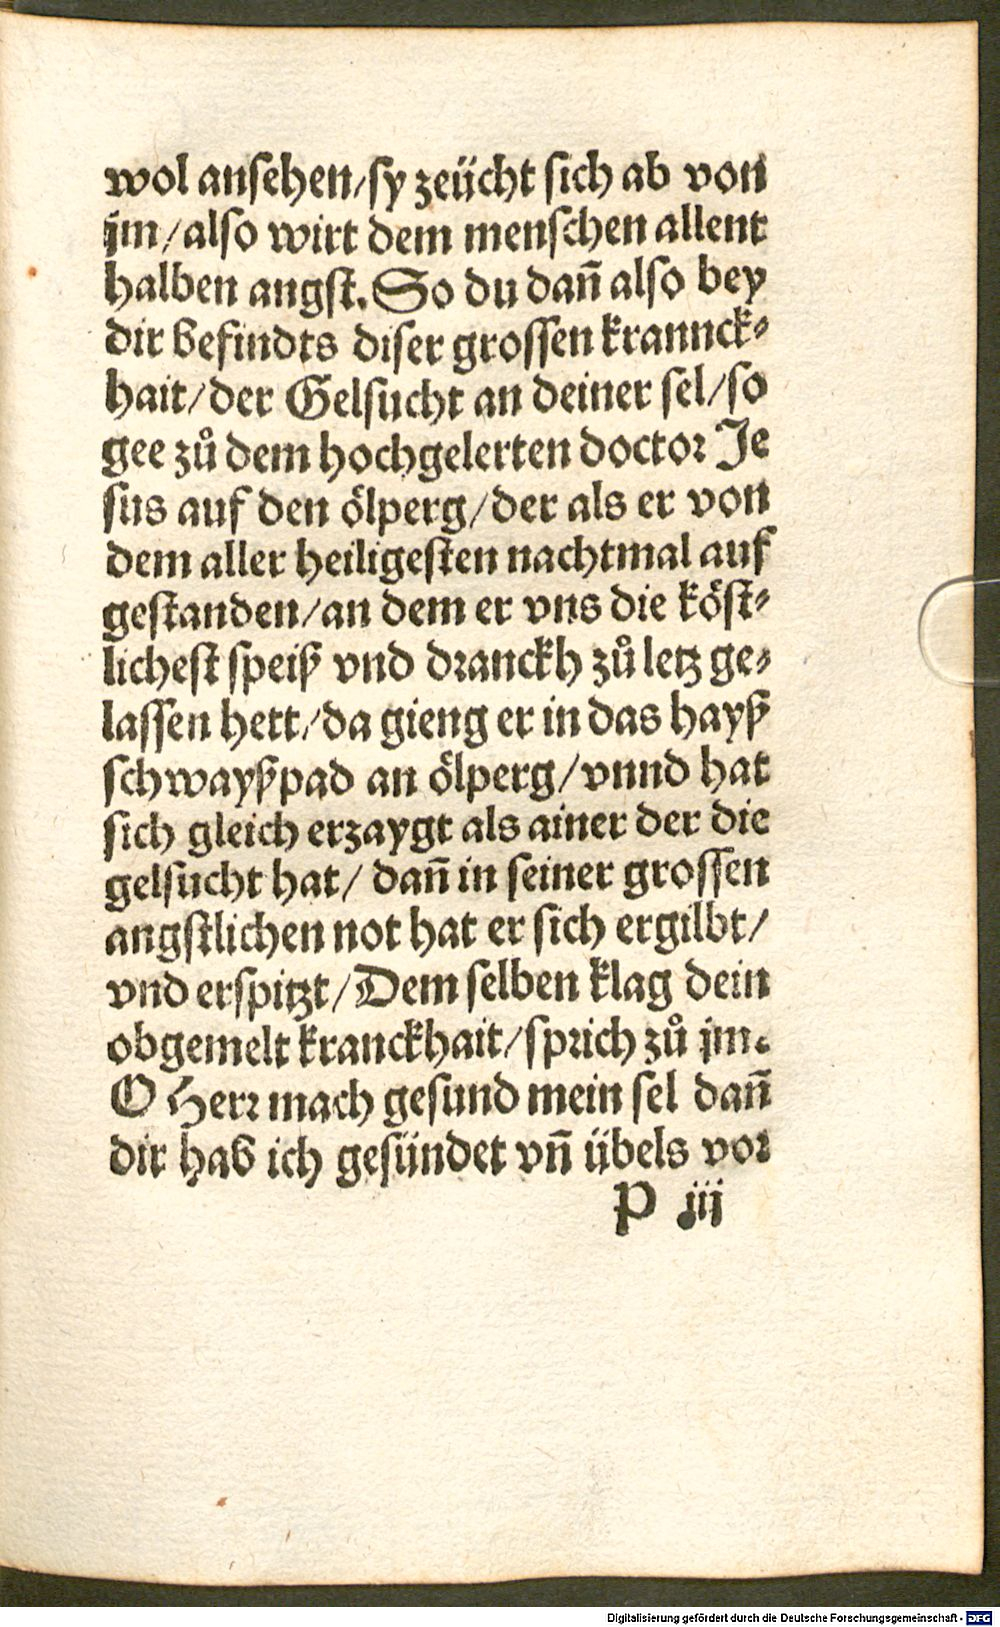 wol ansehen/sy zeücht sich ab von
jm/also wirt dem menschen allent
halben angst. So du dañ also bey
dir befindts diser grossen krannck⸗
hait/der Gelsucht an deiner sel/so
gee zů dem hochgelerten doctor Je
sus auf den ölperg/der als er von
dem aller heiligesten nachtmal auf
gestanden/an dem er vns die köst⸗
lichest speiß vnd dranckh zů letz ge⸗
lassen hett/da gieng er in das hayß
schwayßpad an ölperg/vnnd hat
sich gleich erzaygt als ainer der die
gelsucht hat/ dañ in seiner grossen
angstlichen not hat er sich ergilbt/
vnd erspitzt/Dem selben klag dein
obgemelt kranckhait/sprich zů jm.
O Herr mach gesund mein sel dañ
dir hab ich gesündet vñ übels vor
P iij
Digitalisierung gefördert durch die Deutsche Forschungsgemeinschaft - DFG